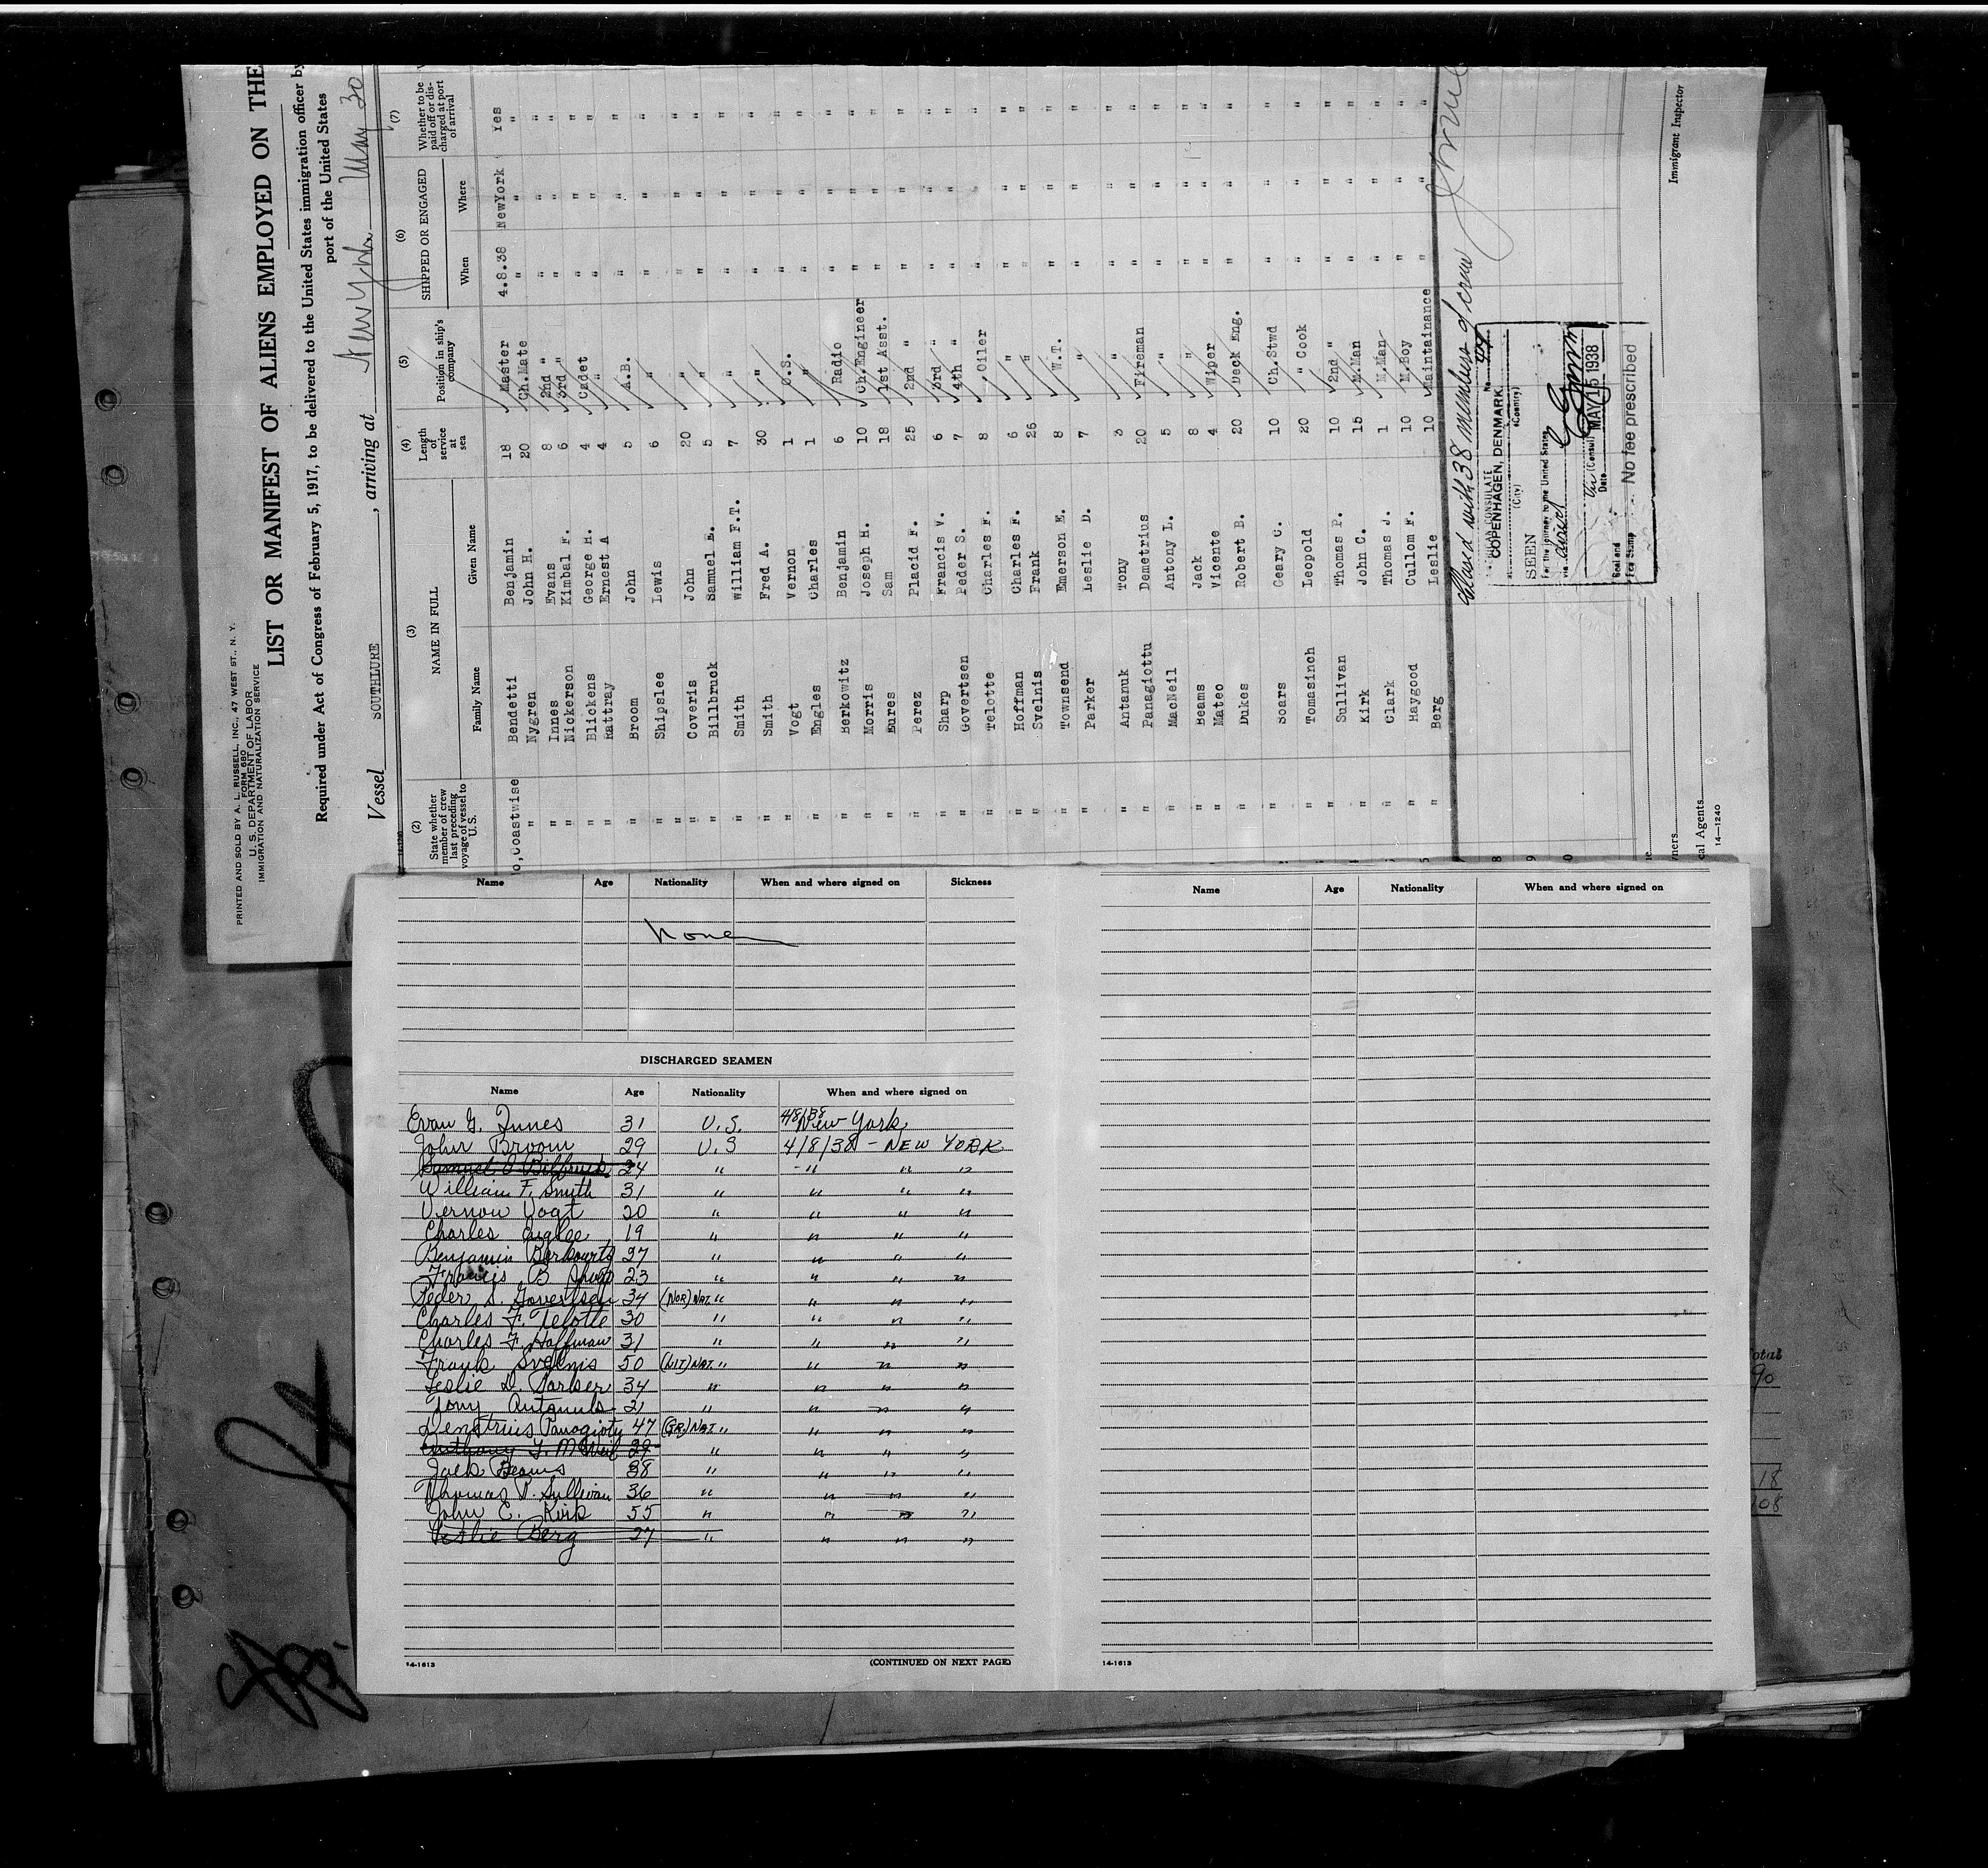 PRINTED AND SOLD BY A. L. RUSSELL, INC., 47 WEST ST., N. Y.
FORM 680
U. S. DEPARTMENT OF LABOR
IMMIGRATION AND NATURALIZATION SERVICE
LIST OR MANIFEST OF ALIENS EMPLOYED ON THE
Required under Act of Congress of February 5, 1917, to be delivered to the United States immigration officer by
port of the United States
Vessel SOUTHLURE, arriving at New York May 30
(2) (3) (4) (5) (6) (7)
State whether member of crew last preceding voyage of vessel to U. S. NAME IN FULL Length of service at sea Position in ship's company SHIPPED OR ENGAGED Whether to be paid off or discharged at port of arrival
Family Name Given Name When Where
o,Coastwise Bendetti Benjamin 18 Master 4.8.38 NewYork Yes
" Nygren John H. 20 Ch.Mate " " "
" Innes Evans 8 2nd " " " "
" Nickerson Kimbal F. 6 3rd " " " "
" Blickens George H. 4 Cadet " " "
" Rattray Ernest A 4 " " " "
" Broom John 5 A.B. " " "
" Shipslee Lewis 6 " " " "
" Coveris John 20 " " " "
" Billbruck Samuel E. 5 " " " "
" Smith William F.T. 7 " " " "
" Smith Fred A. 30 " " " "
" Vogt Vernon 1 O.S. " " "
" Engles Charles 1 " " " "
" Berkowitz Benjamin 6 Radio " " "
" Morris Joseph H. 10 Ch.Engineer " " "
" Eures Sam 18 1st Asst. " " "
" Perez Placid F. 25 2nd " " " "
" Sharp Francis V. 6 3rd " " " "
" Govertsen Peder S. 7 4th " " " "
" Telotte Charles F. 8 Oiler " " "
" Hoffman Charles F. 6 " " " "
" Svelnis Frank 26 " " " "
" Townsend Emerson E. 8 W.T. " " "
" Parker Leslie D. 7 " " " "
" Antanuk Tony 3 " " " "
" Panagiottu Demetrius 20 Fireman " " "
" MacNeil Antony L. 5 " " " "
" Beams Jack 8 " " " "
" Mateo Vicente 4 Wiper " " "
" Dukes Robert B. 20 Deck Eng. " " "
" Soars Ceary C. 10 Ch.Stwd " " "
" Tomasinch Leopold 20 " Cook " " "
" Sullivan Thomas P. 10 2nd " " " "
" Kirk John C. 15 M.Man " " "
" Clark Thomas J. 1 M.Man " " "
" Haygood Cullom F. 10 M.Boy " " "
" Berg Leslie 10 Maintainance " " "
Closed with 38 members of crew
CONSULATE
COPENHAGEN, DENMARK
(City) (Country)
SEEN
For the journey to the United States
via direct
(Consul)
Date MAY 15 1938
Seal and Fee Stamp
No fee prescribed
Immigrant Inspector
cal Agents
14—1240
Name Age Nationality When and where signed on Sickness
None
DISCHARGED SEAMEN
Name Age Nationality When and where signed on
Evan G. Innes 31 U.S. 4/8/38 New York
John Broom 29 U.S 4/8/38 - NEW YORK
24 " " " "
William F. Smith 31 " " " "
Vernon Vogt 20 " " " "
Charles 19 " " " "
Benjamin 27 " " " "
Francis B 23 " " " "
Peder S. Govertsen 34 (NOR) NAT. " " " "
Charles F. Telotte 30 " " " "
Charles F. Hoffman 31 " " " "
Frank Svelnis 50 (LIT) NAT. " " " "
Leslie D. Parker 34 " " " "
Tony 21 " " " "
Demetrius 47 (GR) NAT. " " " "
Anthony L. McNeil 29 " " " "
Jack Beams 38 " " " "
Thomas P. Sullivan 36 " " " "
John C. Kirk 55 " " " "
Leslie Berg 27 " " " "
14-1613 (CONTINUED ON NEXT PAGE)
Name Age Nationality When and where signed on
14-1613
otal
90
18
108